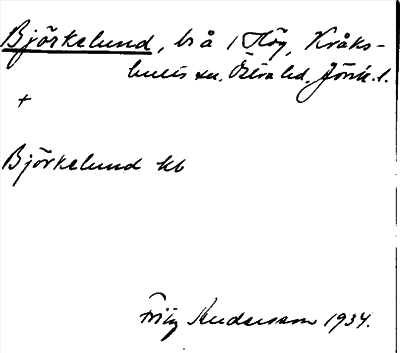 Björkelund, br å 1 Hög, Kråks-
hults sn. Östra hd. Jönk. l.
+
Björkelund kb
Fritz Andersson 1934.